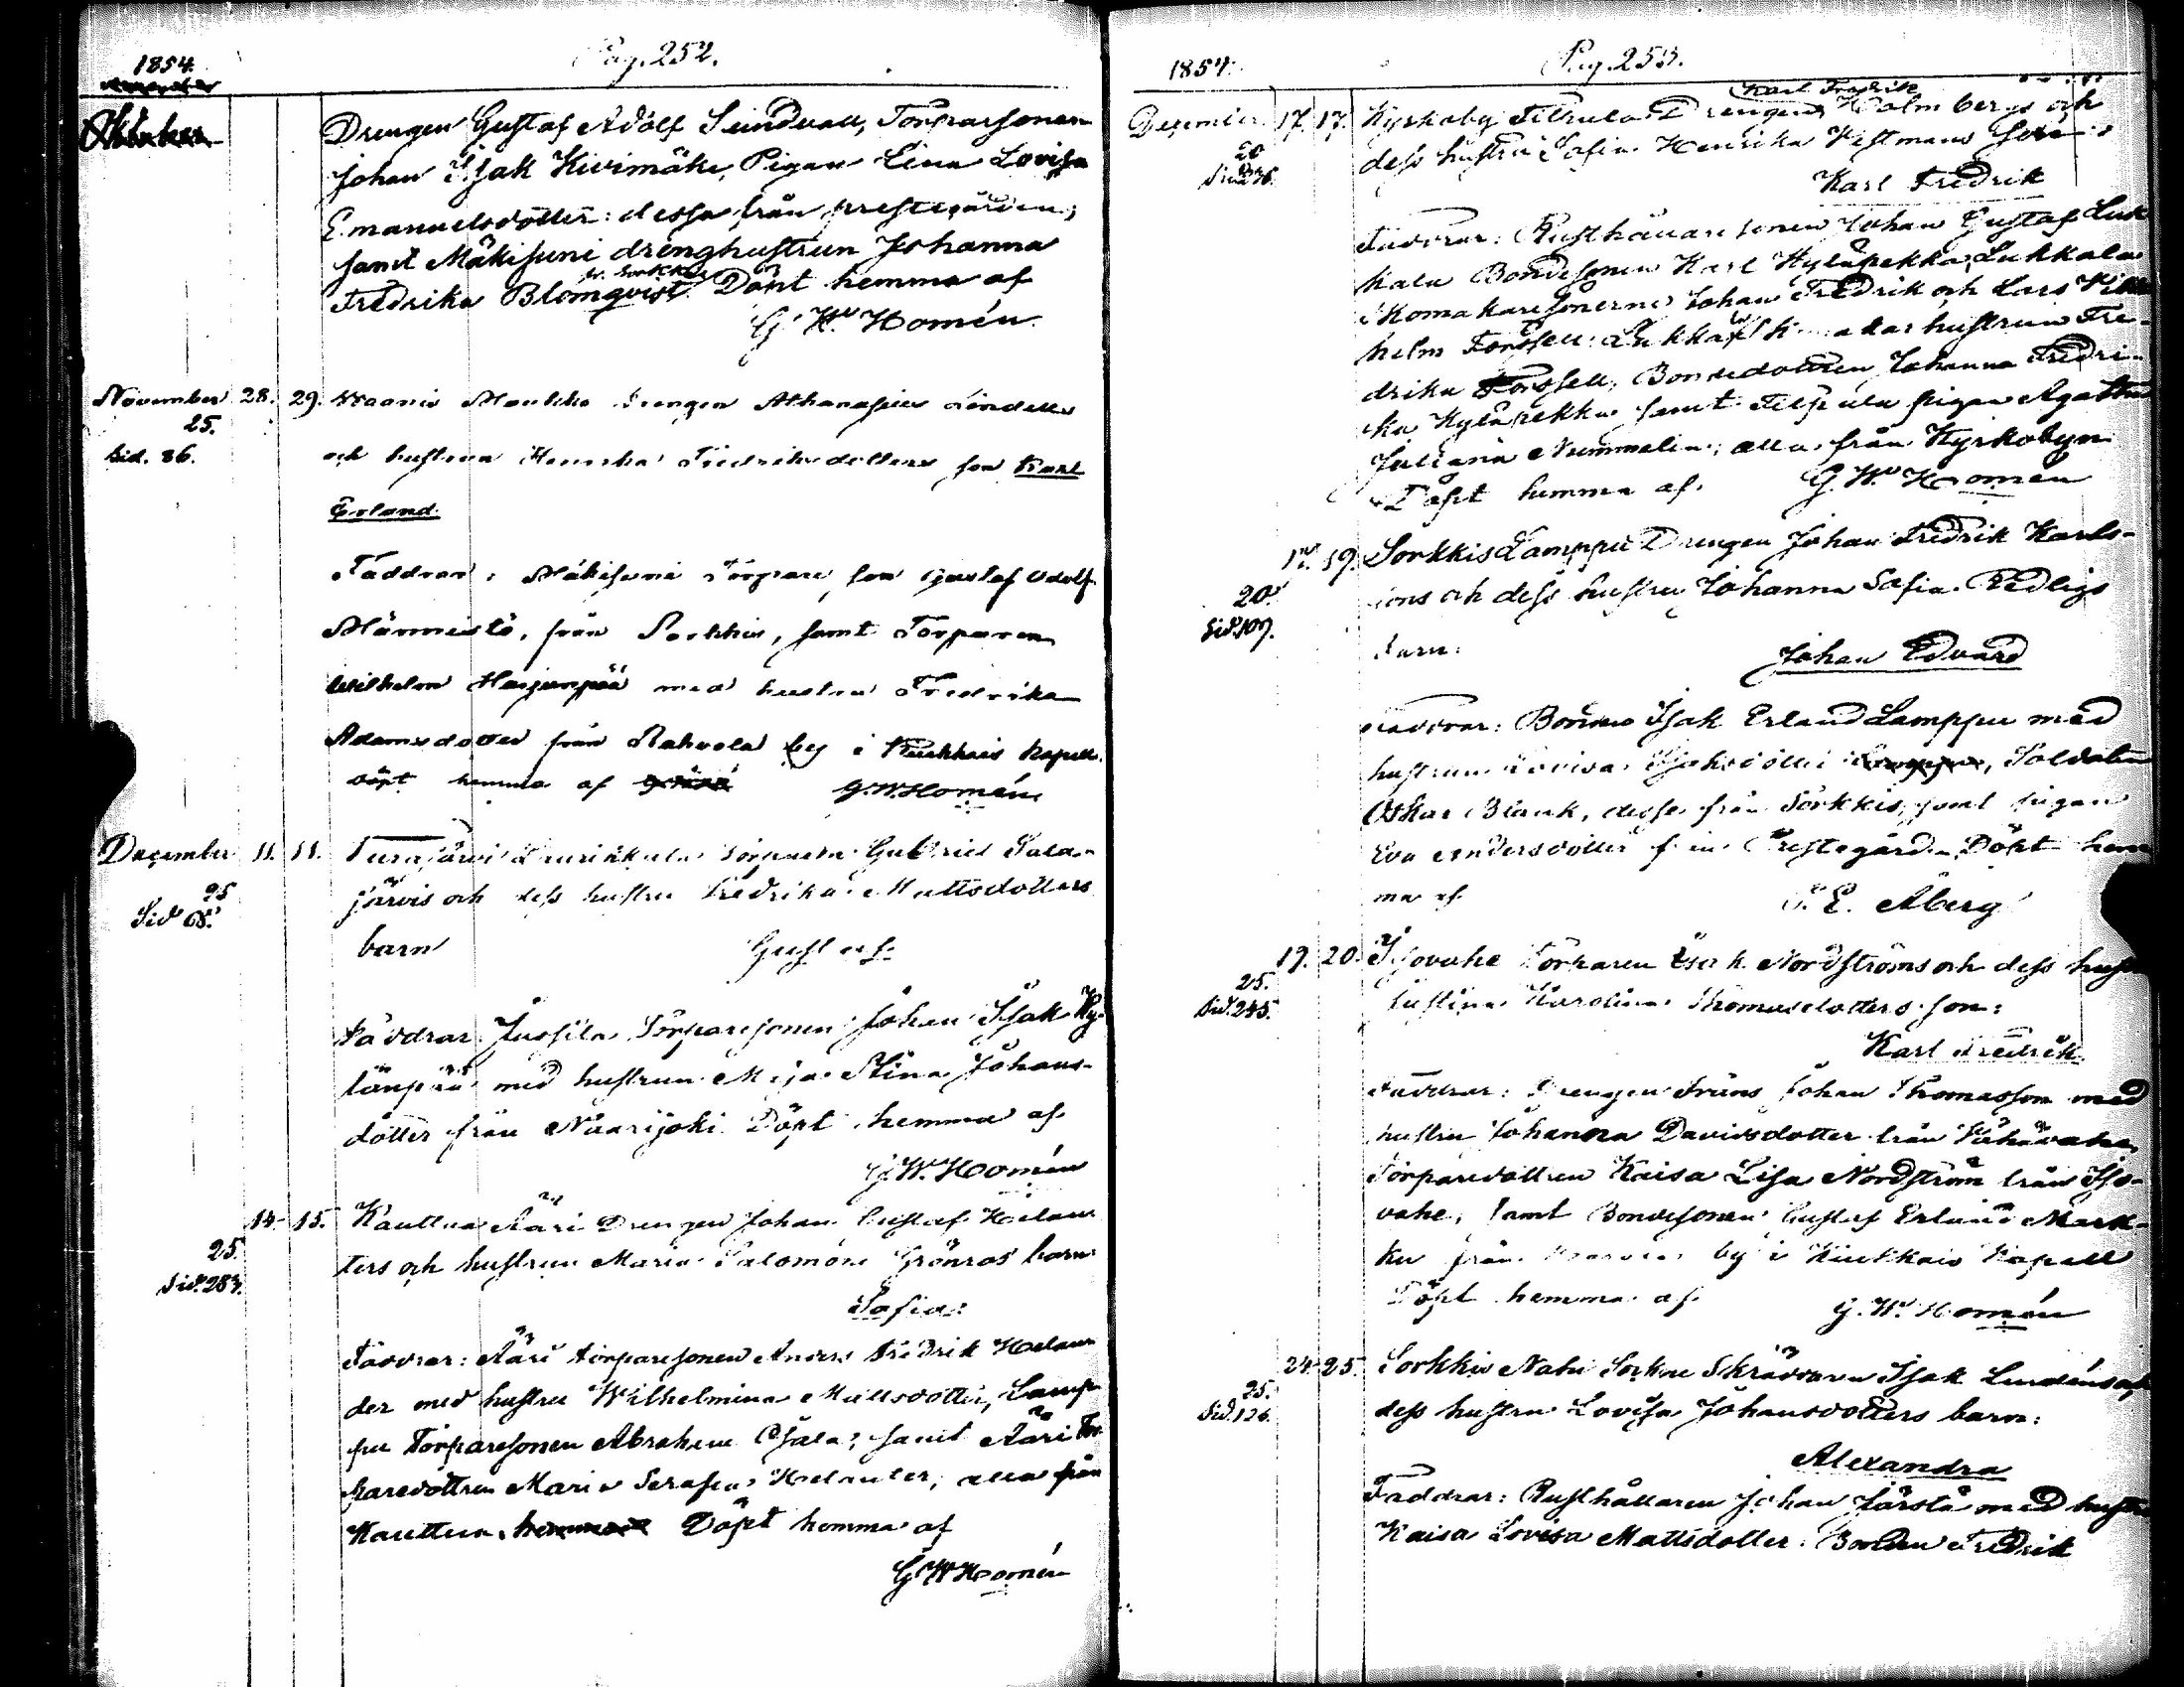 1854.
Pag. 252.
Drengen Gustaf Adolf Sundvall, Torparsonen
Johan Isak Kivimäki, Pigan Lina Lovisa
Emanuelsdotter: dessa från prestegården;
samt Mäkisuni drenghustrun Johanna
fr. Sorkkis
Fredrika Blomqvist. Döpt hemma af
G. W. Homén
November 28. 29. Drengen Athanasius Lindells
25.
Sid. 86.
och hustrun Henrika Fredriksdotters son Karl
Erland.
Faddrar: Mäkisuni Torpare son Gustaf Adolf
Männistö, från Sorkkis, samt Torparen
Wilhelm Harjunpää med hustru Fredrika
Adamsdotter från Rahvola by i Kiukkais Kapell.
döpt hemma af G. W. Homén
December 11. 11. Turajärvi Torparen Gabriel Sala-
25
Sid 68.
järvis och dess hustru Fredrika Mattsdotters
barn Gustaf
Faddrar: Jussila Torparesonen Johan Isak Ky-
länpää med hustrun Maja Stina Johans-
dotter från Naarijoki. Döpt hemma af
G. W. Homén
14. 15. Kauttua Ääri Drengen Johan Gustaf Helan-
25.
Sid. 283.
ters och hustrun Maria Salomone Grönroos barn
Sofia:
Faddrar: Ääri torparesonen Anders Fredrik Helan-
der med hustru Wilhelmina Mattsdotter, Lamp-
pu Torparesonen Abraham Ojala; samt Ääri Tor-
paredottren Maria Serafia Helanter, alla från
Kauttua. Döpt hemma af
G W Homén
1854.
Pag. 253.
Karl Fredrik
December 17. 17. Kyrkoby Tilpula Drengen Holmbergs och
20
dess hustru Sofia Henrika Vestmans son:
Karl Fredrik
Faddrar: Rusthållaresonen Johan Gustaf Luk-
kala Bondesonen Karl Kyläpekka, Lukkala
Skomakaresönerne Johan Fredrik och Lars Vil-
helm Forssell: Lukkala Skomakar hustrun Fre-
drika Forssell, Bondedottren Johanna Fredri-
ka Kyläpekka samt Tilpula pigan Agatha
Juliana Nummelin; alla från Kyrkobyn.
Döpt hemma af. G. W. Homén
19. Sorkkis Lamppu Drengen Johan Fredrik Karls-
20.
Sid. 107.
sons och dess hustru Johanna Sofia Redligs
barn:
Johan Edvard
Faddrar: Bonden Isak Erland Lamppu med
hustrun Lovisa Isaksdotter, Soldaten
Oskar Blank, dessa från Sorkkis, samt pigan
Eva Andersdotter från Prestegården. Döpt hem-
ma af E. Åberg
19. 20. Isovahe Torparen Isak Nordströms och dess hustru
25.
Sid. 245.
Justina Karolina Thomasdotters son:
Karl Fredrik.
Faddrar: Drengen Frans Johan Thomasson med
hustru Johanna Davidsdotter från Vähävahe,
Torparedottren Kaisa Lisa Nordström från Iso-
vahe, samt Bondesonen Gustaf Erland Mark-
ku från by i Kiukkais Kapell
Döpt hemma af.
G. W. Homén
24. 25. Sorkkis Skräddaren Isak Lindéns och
25.
Sid. 126.
dess hustru Lovisa Johansdotters barn:
Alexandra
Faddrar: Rusthållaren Johan Järstä med hustru
Kaisa Lovisa Mattsdotter. Bonden Fredrik